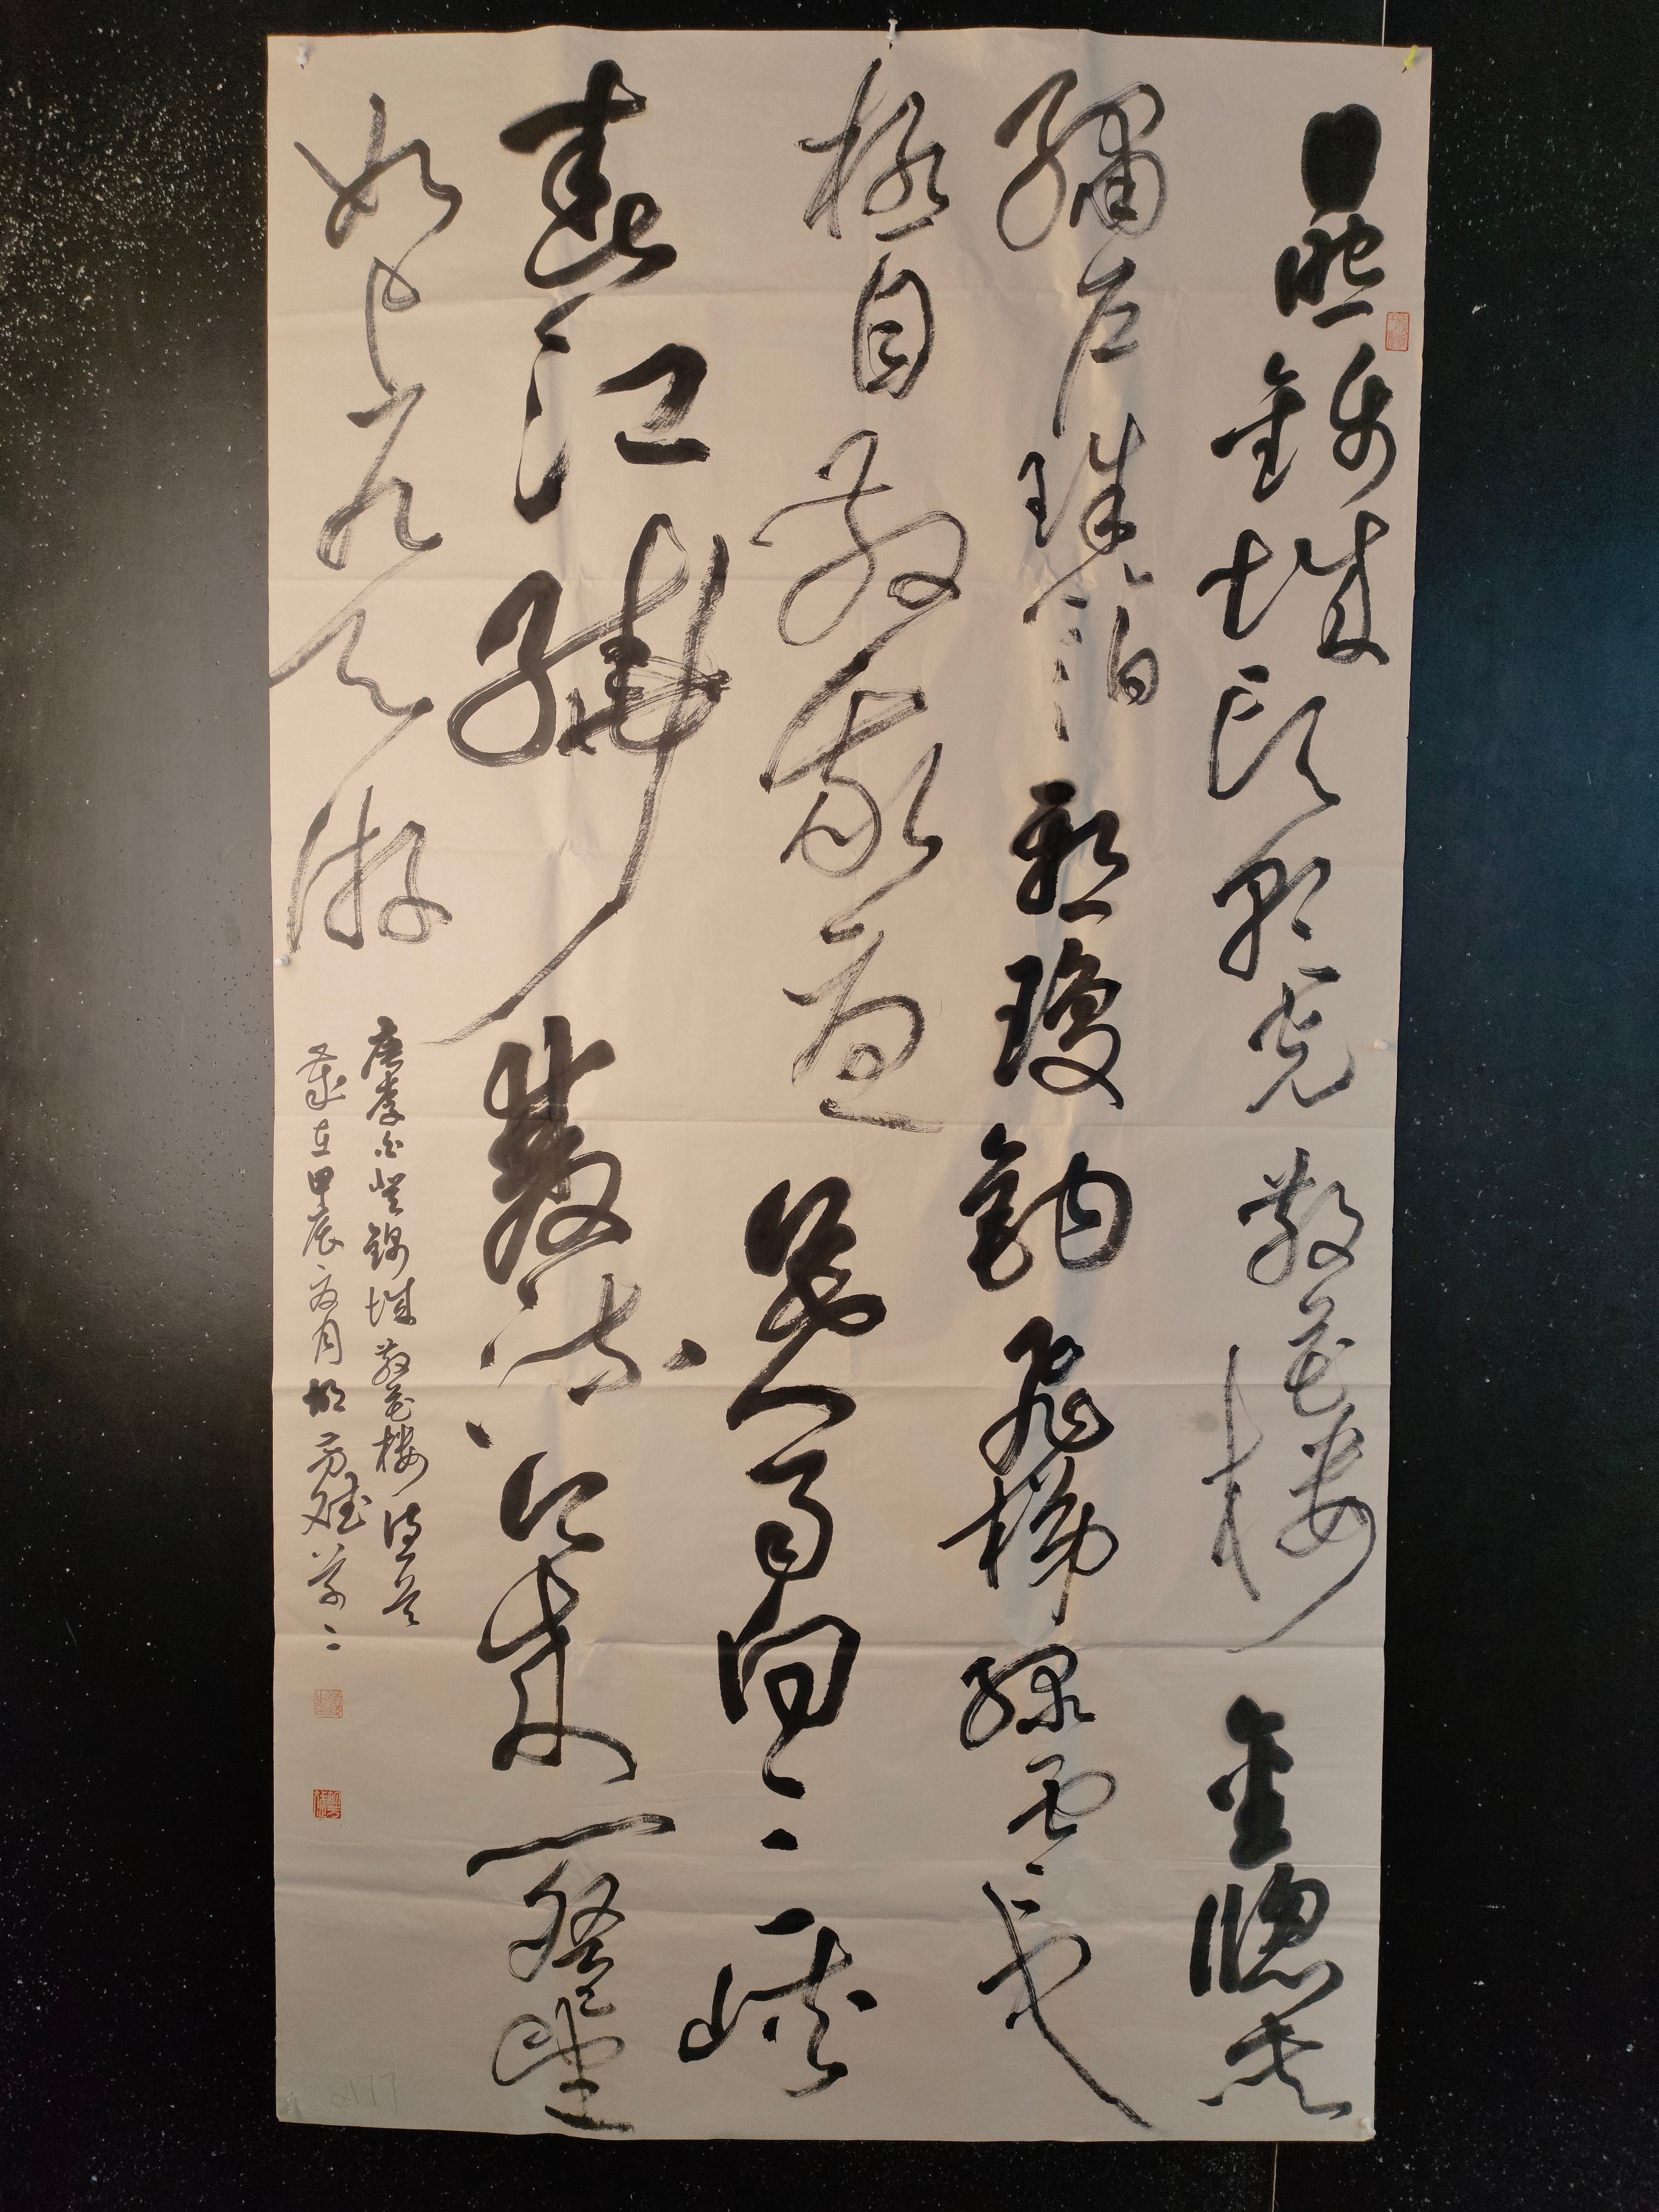 日照錦城頭朝光散花樓金窗夾
繡戶珠箔懸瓊鉤飛梯綠雲中
極目散我憂暮雨向三峽
春江繞雙流今來一登望
如上九天游
唐李白登錦城散花樓詩一首
歲在甲辰夏月